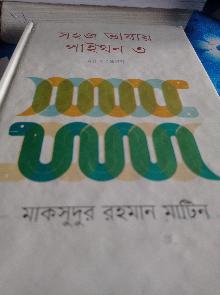 সহজ ভাষায়
পাইথন ৩
মাকসুদুর রহমান মাটিন